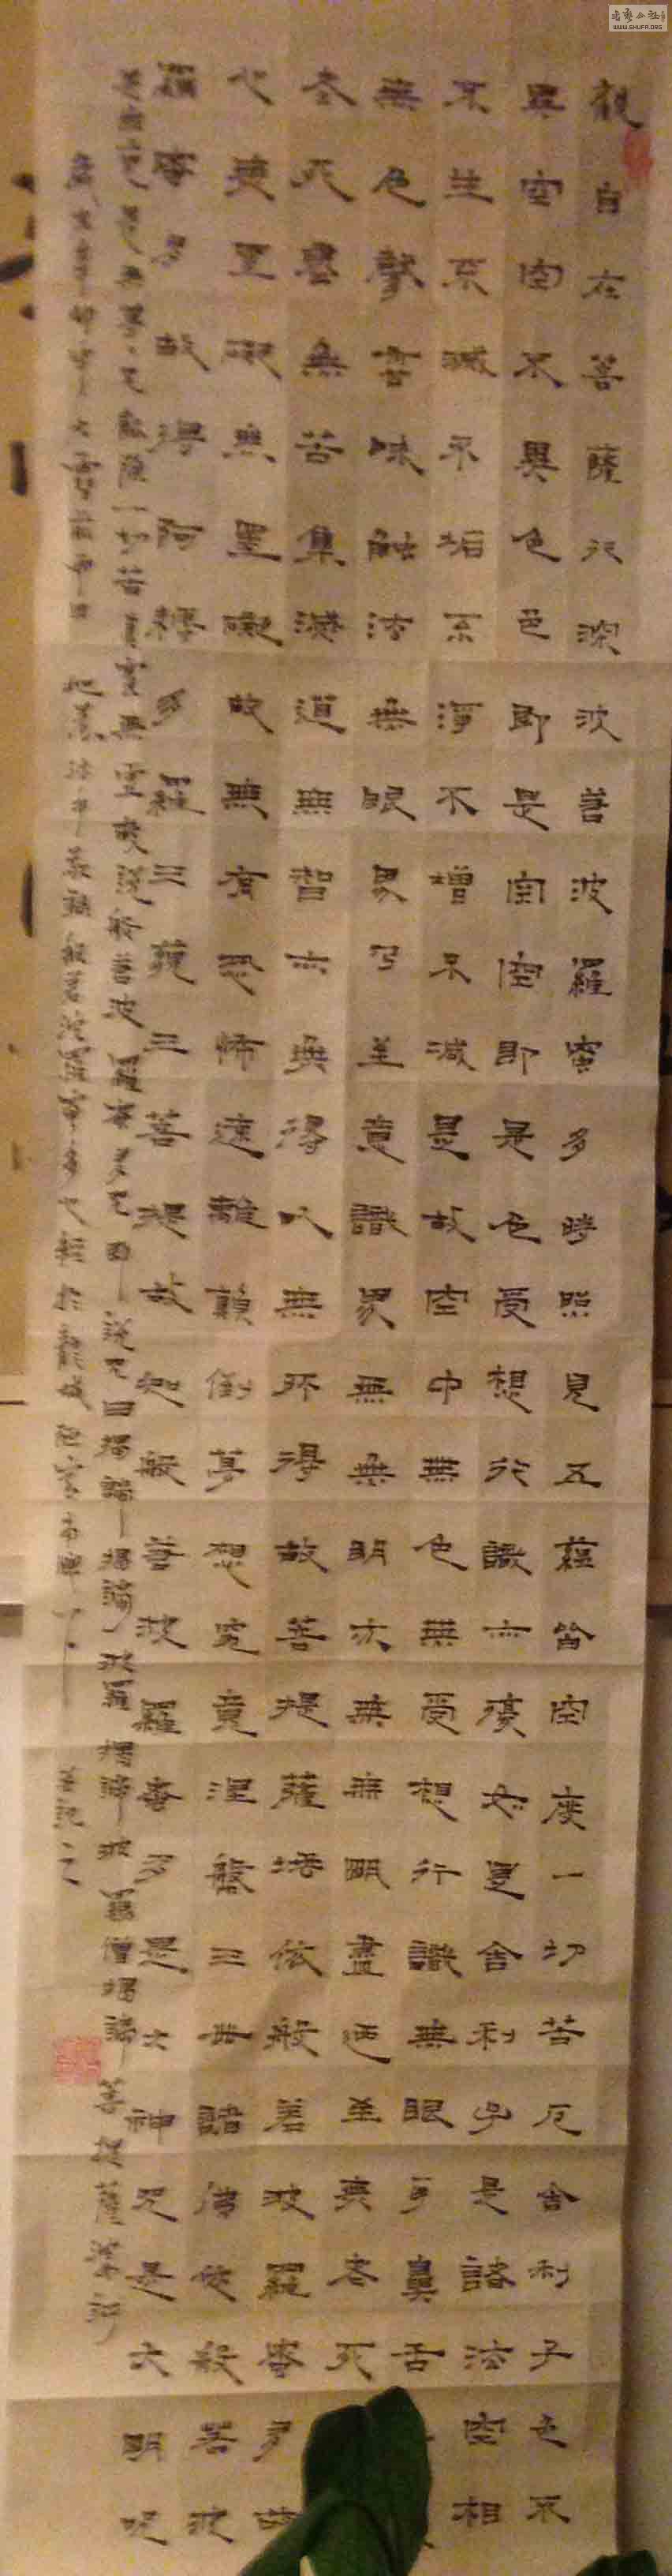 觀自在菩薩行深波若波羅蜜多時照見五蘊皆空度一切苦厄舍利子色不
異空空不異色色即是空空即是色受想行識亦復如是舍利子是諸法空相
不生不滅不垢不淨不增不減是故空中無色無受想行識無眼耳鼻舌
無色聲香味觸法無眼界乃至意識界無無明亦無無明盡乃至無老死
老死盡無苦集滅道無智亦無得以無所得故菩提薩埵依般若波羅蜜多故
心無罣礙無罣礙故無有恐怖遠離顛倒夢想究竟涅盤三世諸佛依般若波
羅蜜多故得阿耨多羅三藐三菩提故知般若波羅蜜多是大神咒是大明咒
是無上咒是無等等咒能除一切苦真實不虛故說般若波羅蜜多咒即說咒曰揭諦揭諦波羅揭諦波羅僧揭諦菩提薩婆訶
般若波羅蜜多心經於龍城
WWW.SHUFA.ORG